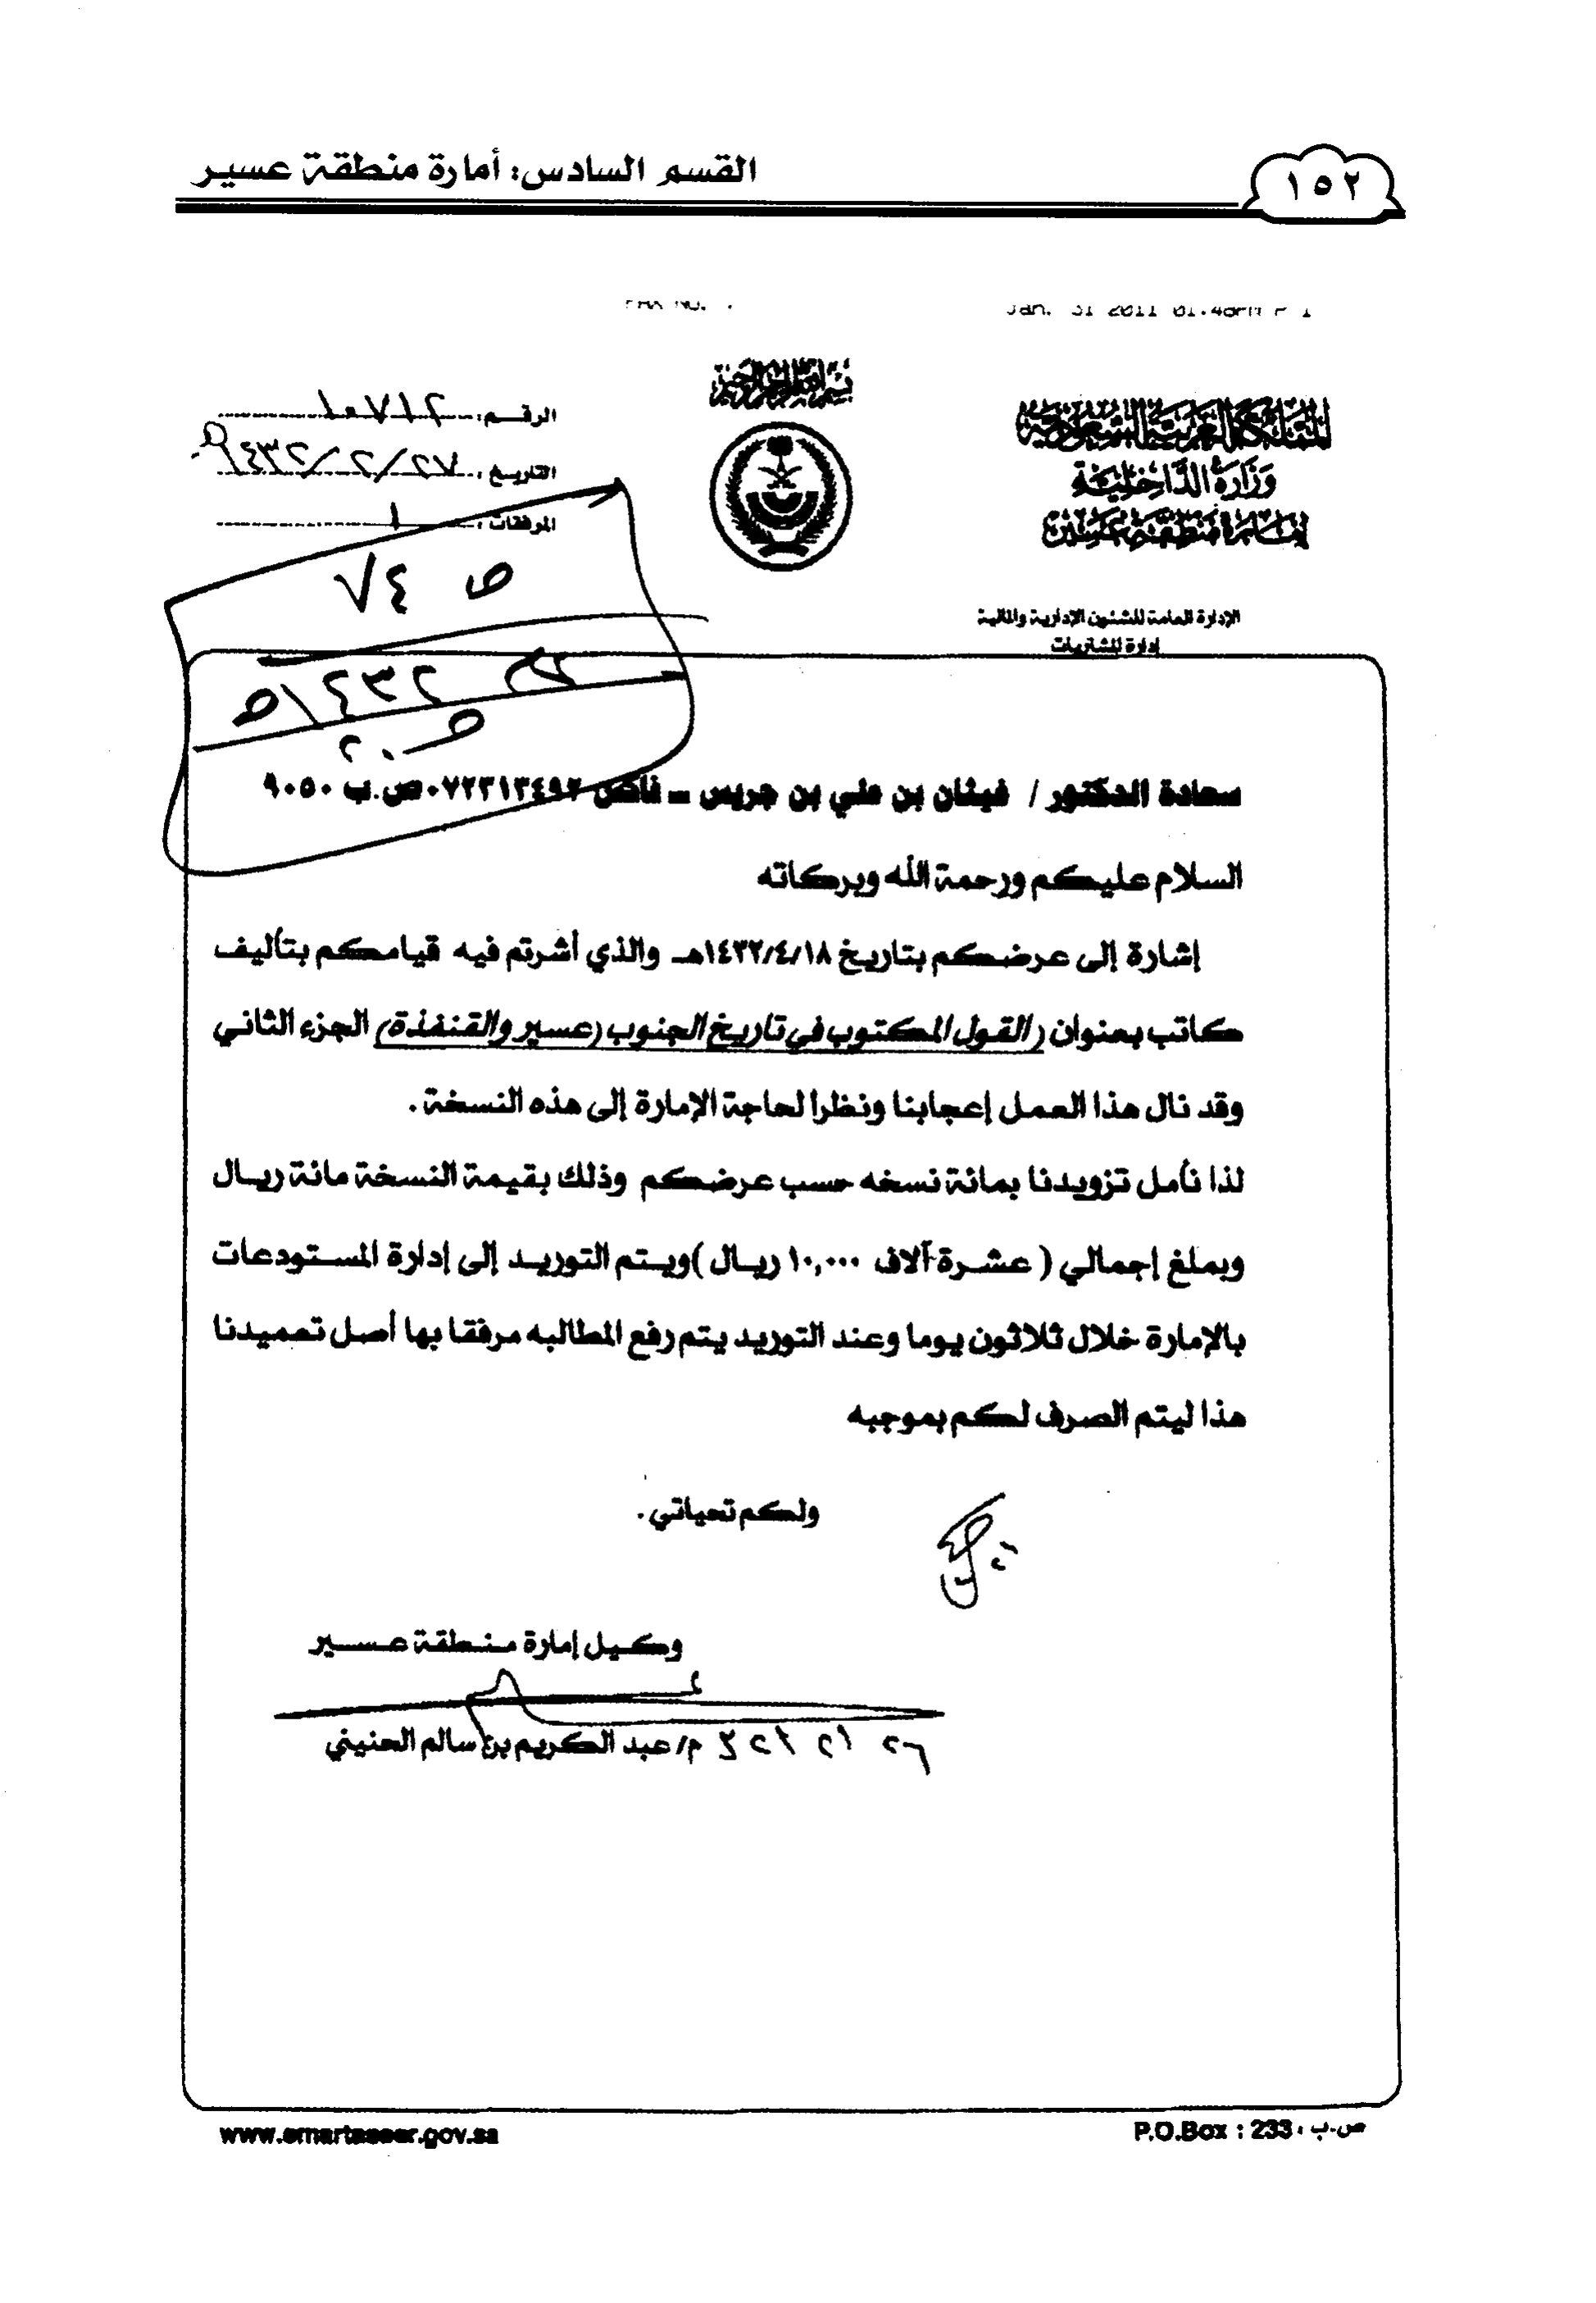 القسم السادس: أمارة منطقة عسير
١٥٢
Jan. 31 2011 01:48PM P 1
FAX NO. :
بسم الله الرحمن الرحيم
المملكة العربية السعودية
وزارة الداخلية
إمارة منطقة عسير
الإدارة العامة للشئون الإدارية والمالية
إدارة المشتريات
الرقـم : ١٠٧١٢
التاريخ : ٢٧/٢/١٤٣٢هـ
المرفقات : ١
٧٤
١٤٣٢هـ
سعادة الدكتور / غيثان بن علي بن جريس ــ فاكس ٠٧٢٣١٣٤٩٢ ص.ب ٩٠٥٠
السلام عليكم ورحمة الله وبركاته
إشارة إلى عرضكم بتاريخ ١٤٣٢/٤/١٨هـ والذي أشرتم فيه قيامكم بتأليف
كاتب بعنوان (القول المكتوب في تاريخ الجنوب (عسير والقنفذة) الجزء الثاني
وقد نال هذا العمل إعجابنا ونظرا لحاجة الإمارة إلى هذه النسخة .
لذا نأمل تزويدنا بمائة نسخه حسب عرضكم وذلك بقيمة النسخة مائة ريـال
وبملغ إجمالي ( عشـرة آلاف ١٠,٠٠٠ ريـال )ويـتم التوريـد إلى إدارة المستودعات
بالإمارة خلال ثلاثون يوما وعند التوريد يتم رفع المطالبه مرفقا بها أصل تعميدنا
هذا ليتم الصرف لكم بموجبه
ولكم تحياتي .
وكـيل إمارة منـطقة عـسـير
م/ عبد الكريم بن سالم الحنيني
www.emartaseer.gov.sa
P.O.Box : 233 : ص.ب